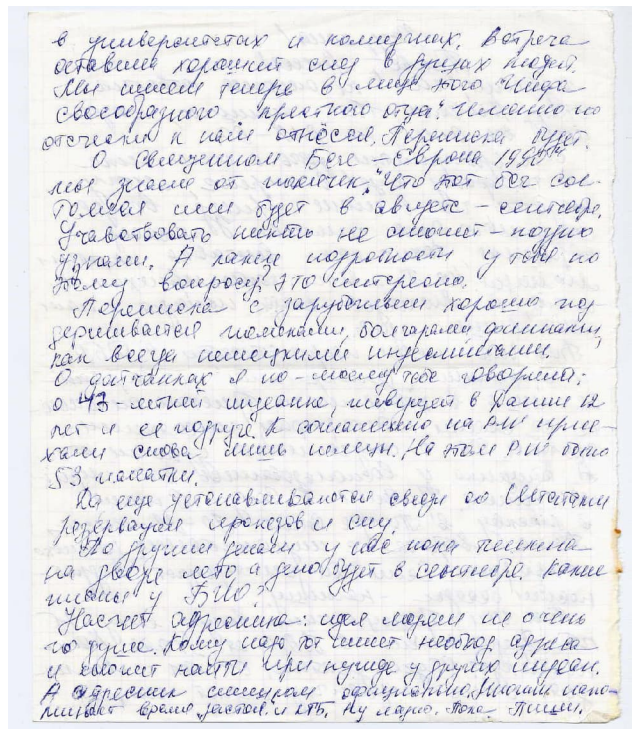 в университетах и колледжах. Встреча
оставила хороший след в душах людей.
Мы ищем теперь в лице этого Чифа
своеобразного "крестного отца". Именно по
отечески к нам отнёсся. Переписка будет.
О Священном Беге – Европа 1990
мы знаем от полячек. Что этот бег сос-
тоялся или будет в августе – сентябре.
Учавствовать никто не сможет – поздно
узнали. А какие подробности у тебя по
этому вопросу? Это интересно.
Переписка с зарубежьем хорошо под-
держивается поляками, болгарами, финнами,
как всегда немецкими индеанистами.
О датчанках я по-моему тебе говорила:
о 43-летней индеанке, живущей в Дании 12
лет и её подруге. К сожалению на PW прие-
хали снова лишь немцы. На этом PW было
53 палатки.
Да ещё устанавливаются связи со Штатами
резервация ирокезов и сиу.
По другим делам у нас пока тишина
на дворе лето, а дело будет в сентябре. Какие
планы у
Насчёт адресника: идея людям не очень
по душе. Кому надо, тот имеет необход. адреса
и сможет найти при нужде у других индеан.
А адресник слишком официально. Многим напо-
минает время "застоя" и КГБ. Ну ладно. Пока. Пиши.